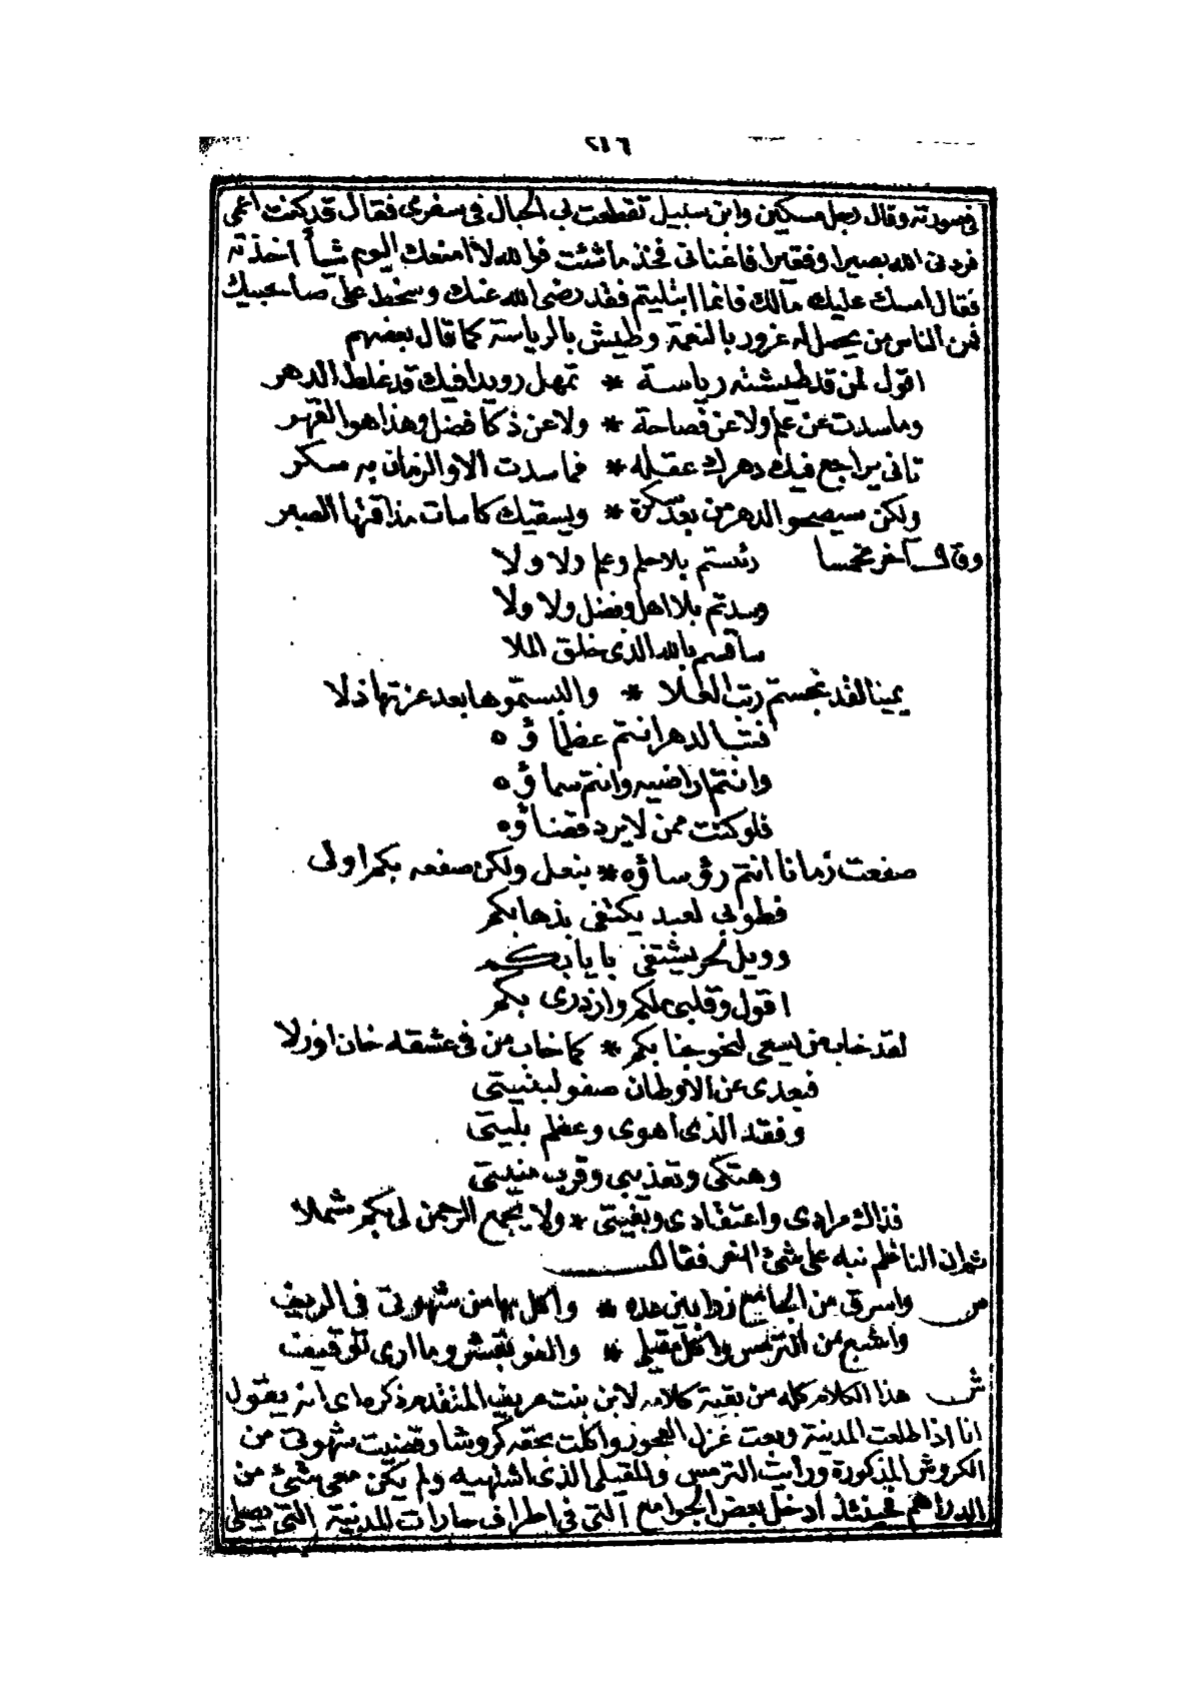 ٢١٦
في صورته وقال رجل مسكين وابن سبيل تقطعت بي الحبال في سفري فقال قد كنت اعمى
فردني الله بصيرا وفقيرا فاغناني فخذ ما شئت فوالله لا امنعك اليوم شيأ اخذته
فقال امسك عليك مالك فانما ابتليتم فقد رضى الله عنك وسخط على صاحبيك
فمن الناس من يحصل له غرور بالنعمة وطيش بالرياسة كما قال بعضهم
اقول لمن قد طيشته رياسة * تمهل رويدا فيك قد غلط الدهر
وما سدت عن علم ولا عن فصاحة * ولا عن ذكا فضل وهذا هو القهر
تاني يراجع فيك دهرك عقله * فما سدت الا والزمان به سكر
ولكن سيصحو الدهر من بعد سكرة * ويسقيك كاسات مذاقتها الصبر
وقال آخر مخمسا رئستم بلا حلم وعلم ولا ولا
وسدتم بلا اهل وفضل ولا ولا
ساقسم بالله الذى خلق الملا
يمينا لقد نجستم رتب العلا * والبستموها بعد عزتها ذلا
فتبا لدهر انتم عظماؤه
وانتم اراضيه وانتم سماؤه
فلو كنت ممن لا يرد قضاؤه
صفعت زمانا انتم رؤساؤه * بنعل ولكن صفعه بكم اولى
فطوبى لعبد يكتفى بذهابكم
وويل لحر يشتفى بايابكم
اقول وقلبي ملكم وازدرى بكم
لقد خاب من يسعى لنحو جنابكم * كما خاب من في عشقه خان او زلا
فبعدى عن الاوطان صفو لبغيتى
وفقد الذى اهوى وعظم بليتى
وهتكى وتعذيبى وقرب منيتى
فذاك مرادى واعتقادى وبغيتى * ولا يجمع الرحمن لى بكم شملا
ثم ان الناظم نبه على شئ اخر فقال
ص واسرق من الجامع زرابين عده * واكل بها من شهوتى فى الريف
واشبع من الترمس واكل مقيلى * والفو بقشر وما ارى توقيف
ش هذا الكلام كله من بقية كلامه لابن بنت عريف المتقدم ذكره اى انه يقول
انا اذا طلعت المدينة وبعت غزل العجوز واكلت بحقه كروشا وقضيت شهوتى من
الكروش المذكورة ورايت الترمس والمقيلى الذى اشتهيه ولم يكن معى شئ من
الدراهم فحينئذ ادخل بعض الجوامع التى فى اطراف حارات المدينة التى يصلى